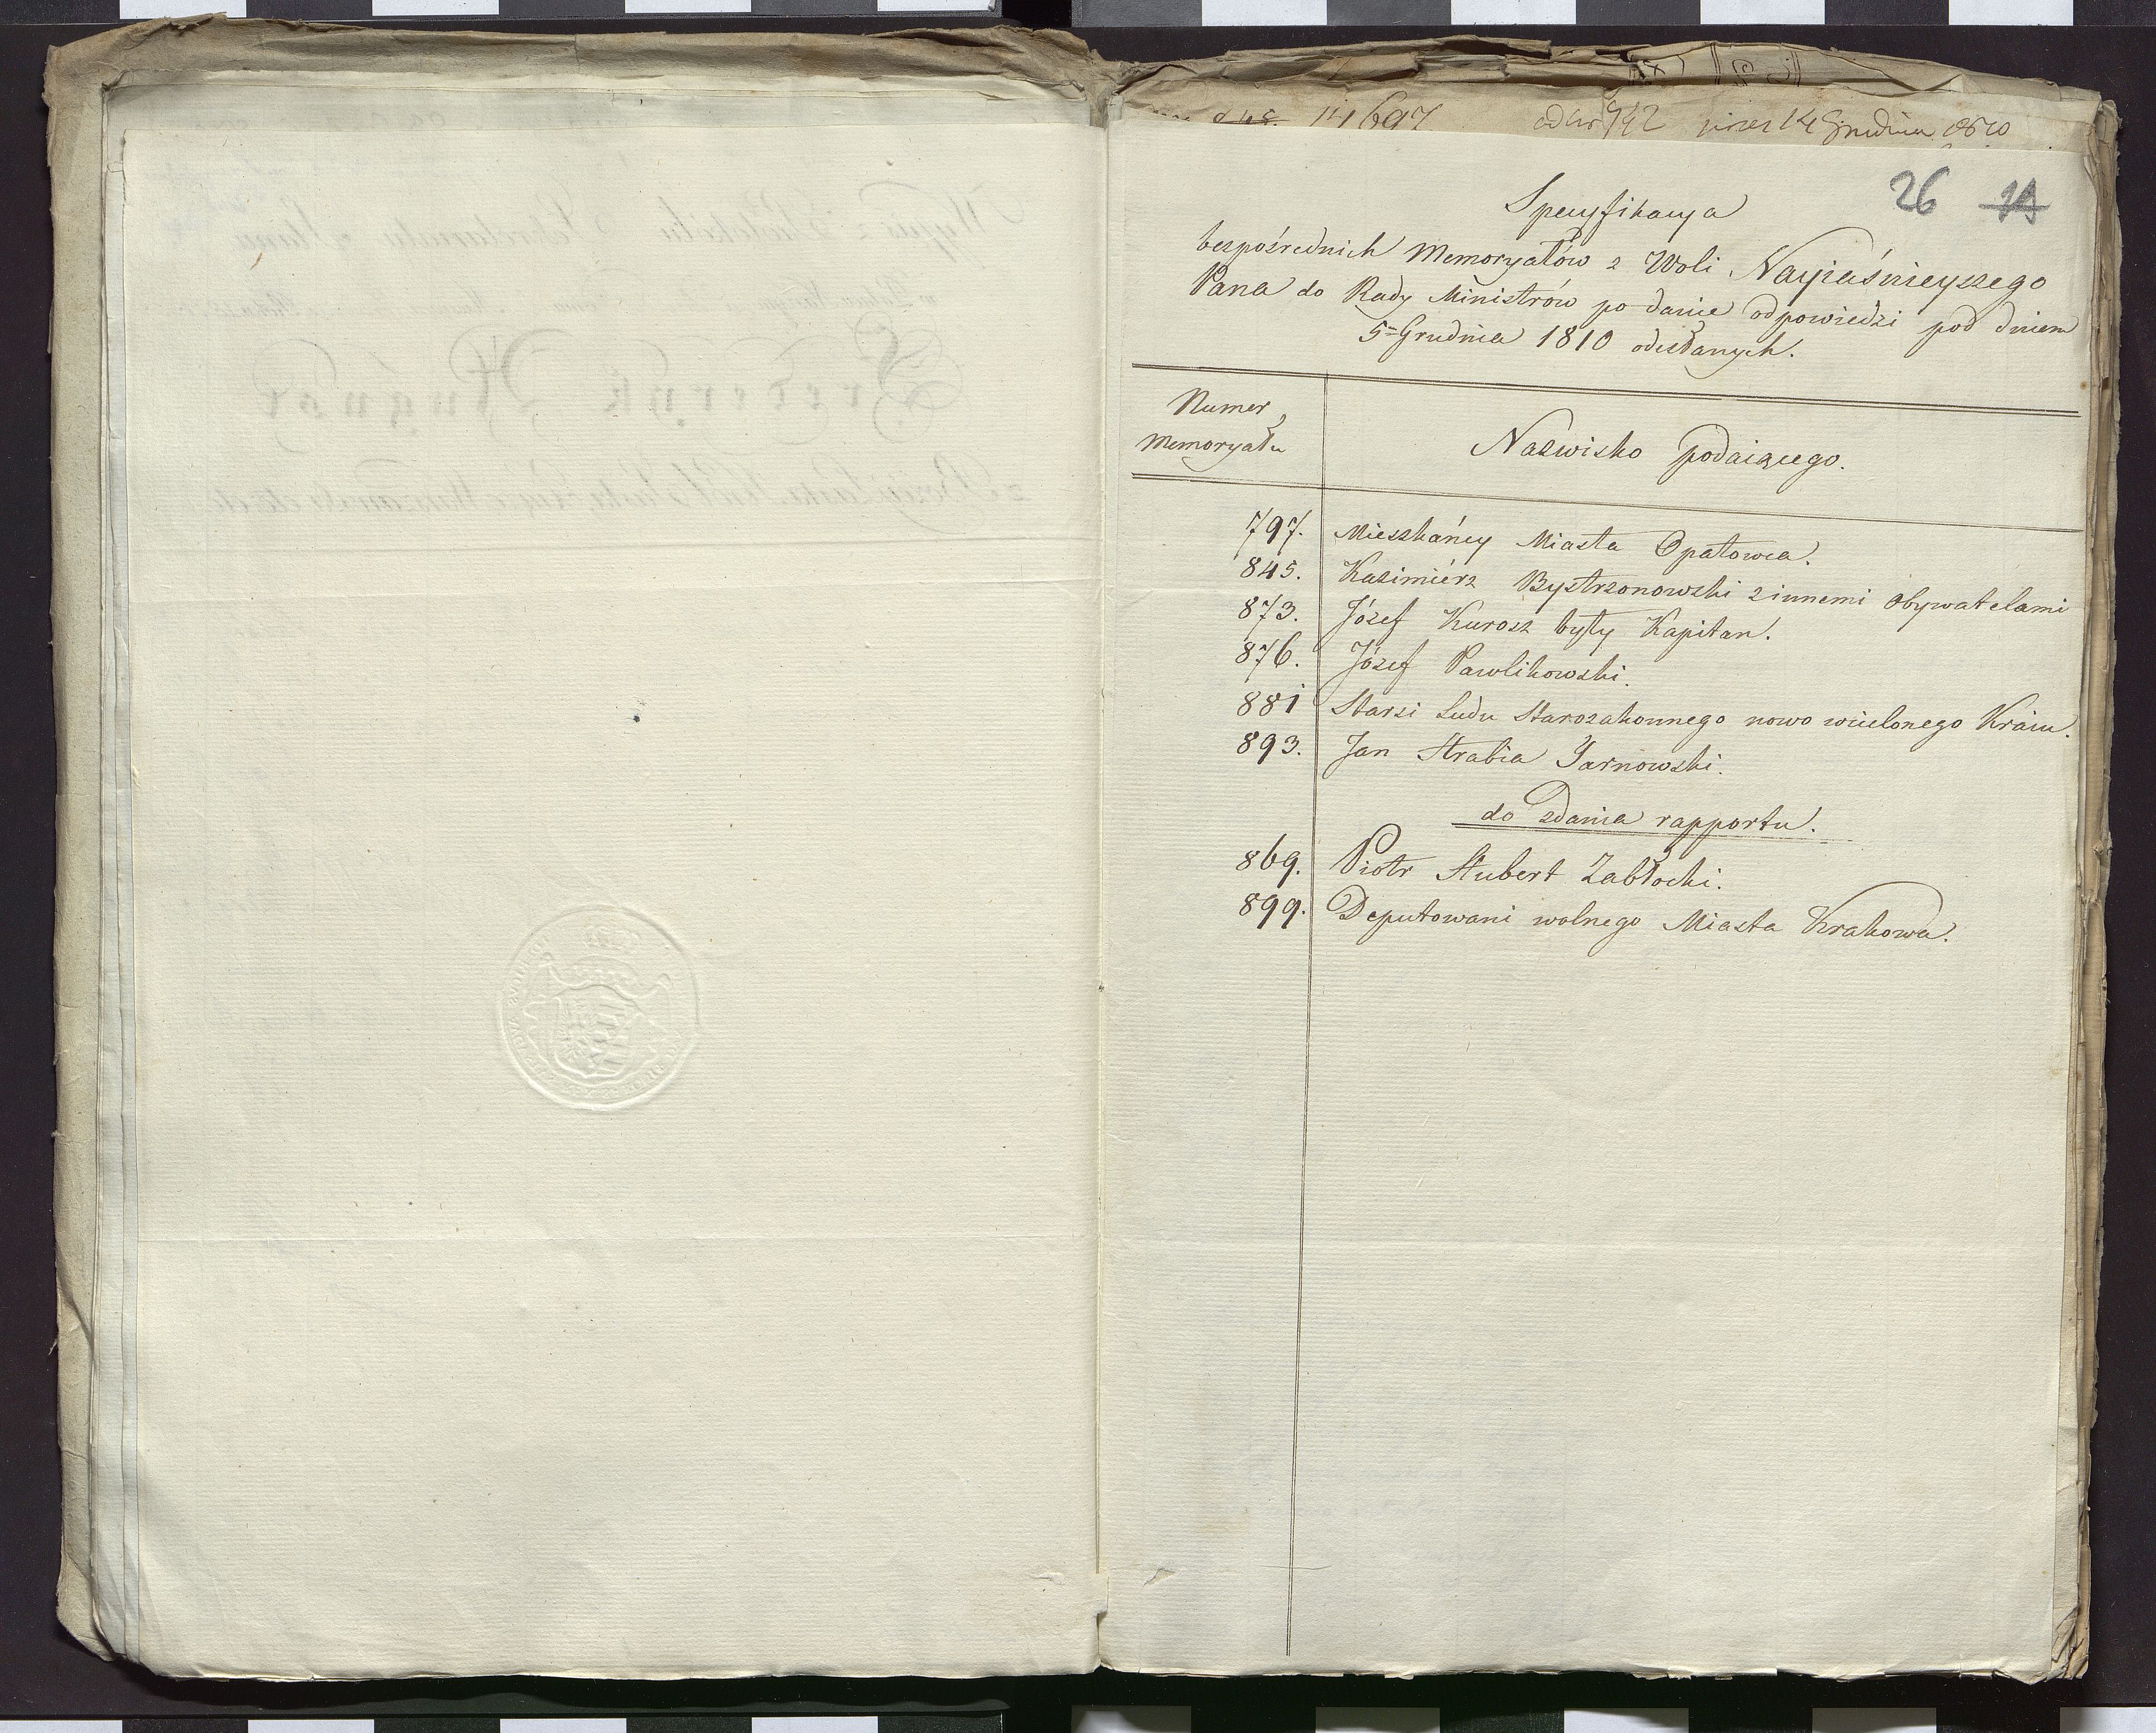 14697 przez 14 Grudnia 1810
26 14
Specyfikacya
bezpośrednich Memoryałów z Woli Nayiaśnieyszego
Pana do Rady Ministrów po danie odpowiedzi pod dniem
5= Grudnia 1810 odesłanych.
Numer
Memoryału
Nazwisko podaiącego.
797. Mieszkańcy Miasta Opatowca.
845. Kazimiérz Bystrzonowski z innemi Obywatelami
873. Józef Kurosz były Kapitan.
876. Józef Pawlikowski.
881 Starsi Ludu Starozakonnego nowo wcielonego Kraiu.
893. Jan Hrabia Tarnowski.
do zdania rapportu.
869. Piotr Hubert Zabłocki.
899. Deputowani wolnego Miasta Krakowa.